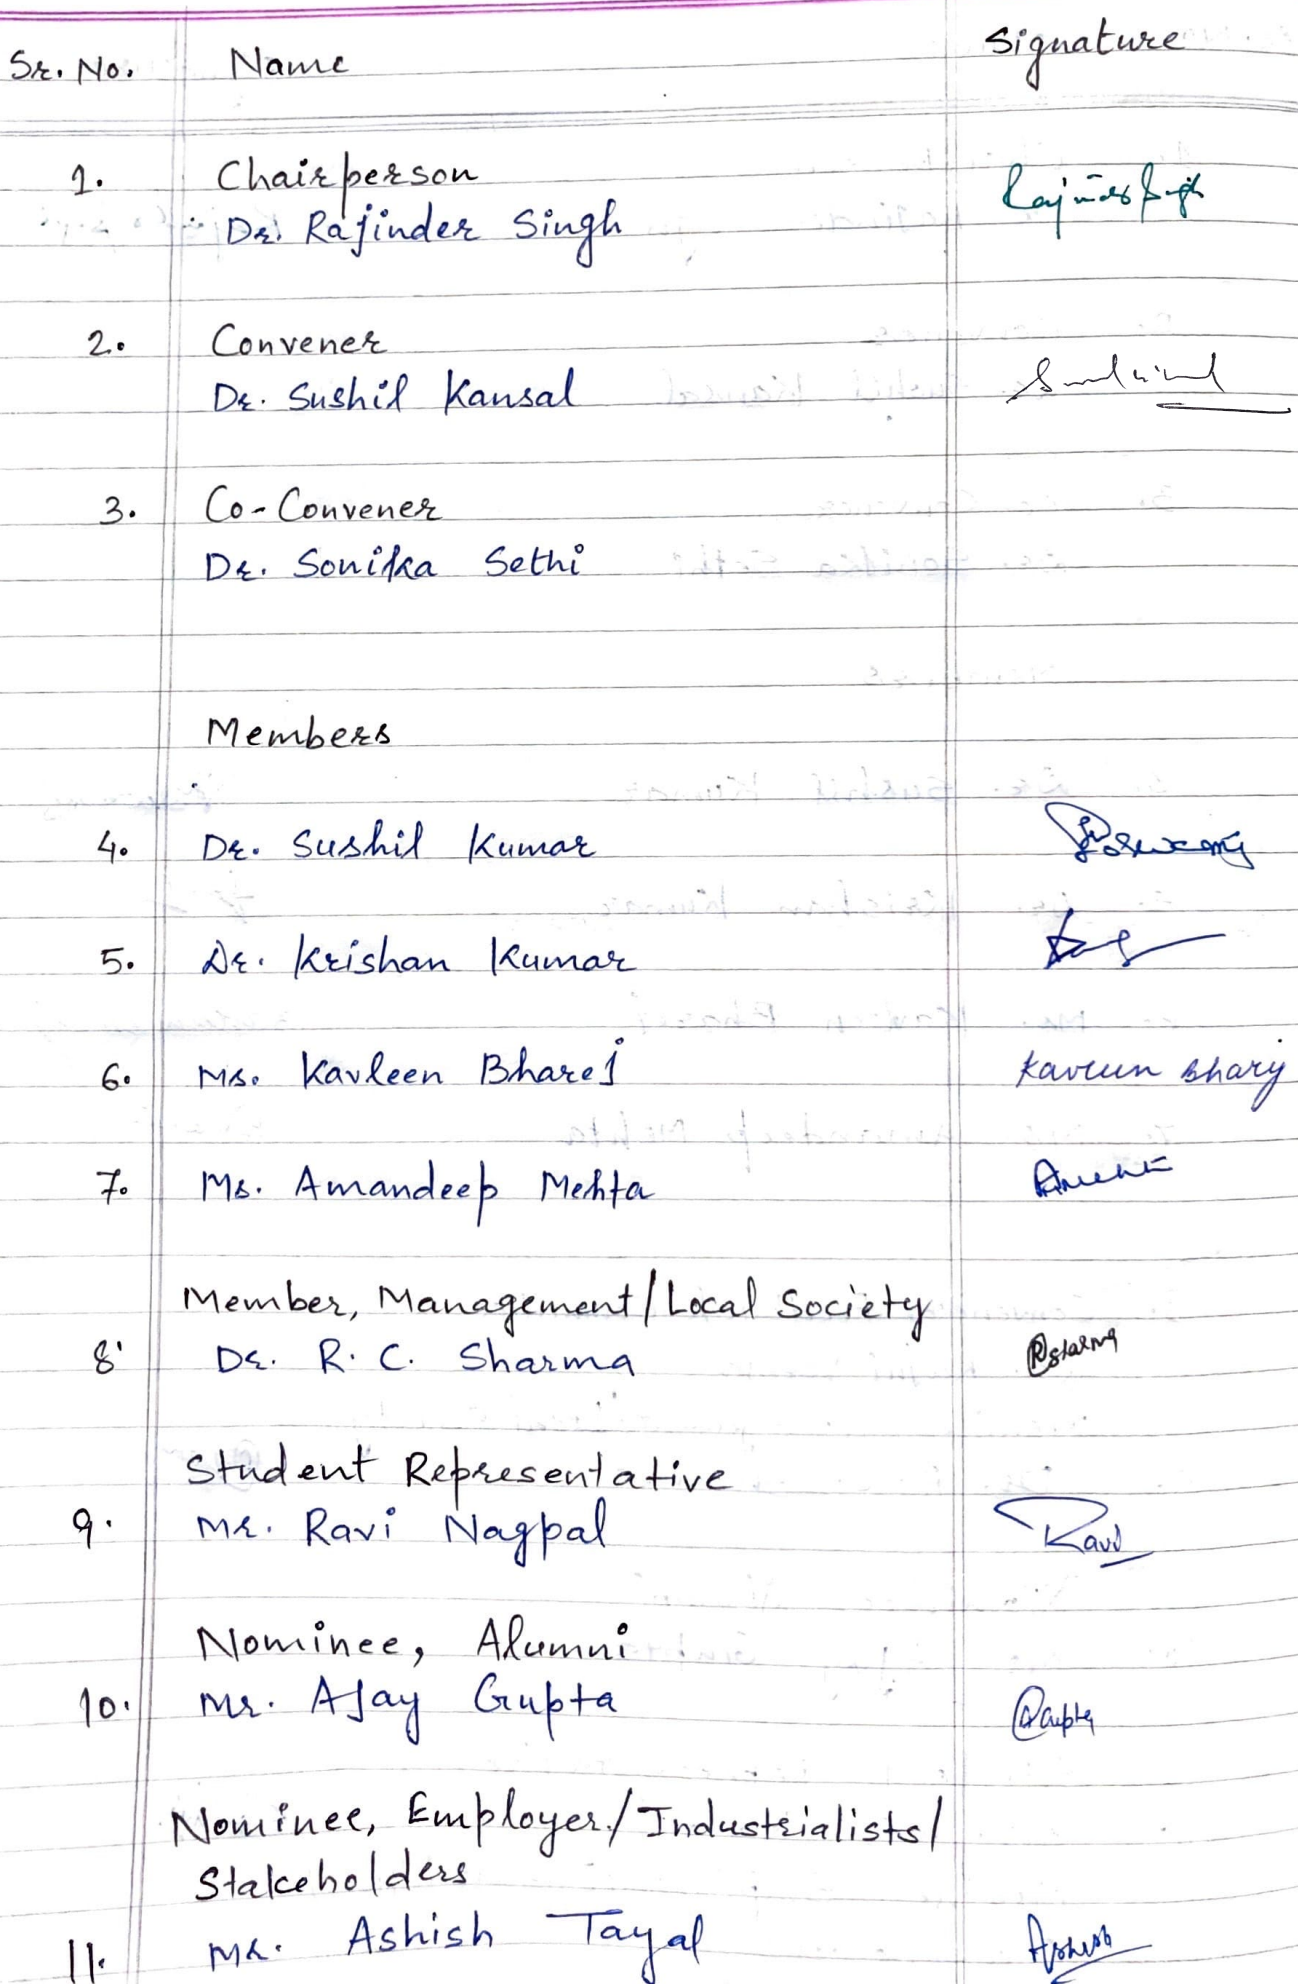 Sr. No. Name Signature
1. Chairperson
Dr. Rajinder Singh Rajinder Singh
2. Convener
Dr. Sushil Kansal
3. Co-Convener
Dr. Sonika Sethi
Members
4. Dr. Sushil Kumar
5. Dr. Krishan Kumar
6. Ms. Kavleen Bharej Kavleen Bharej
7. Ms. Amandeep Mehta
Member, Management/Local Society
8. Dr. R. C. Sharma RSharma
Student Representative
9. Mr. Ravi Nagpal Ravi
Nominee, Alumni
10. Mr. Ajay Gupta AGupta
Nominee, Employer/Industrialists/
Stakeholders
11. Mr. Ashish Tayal Ashish